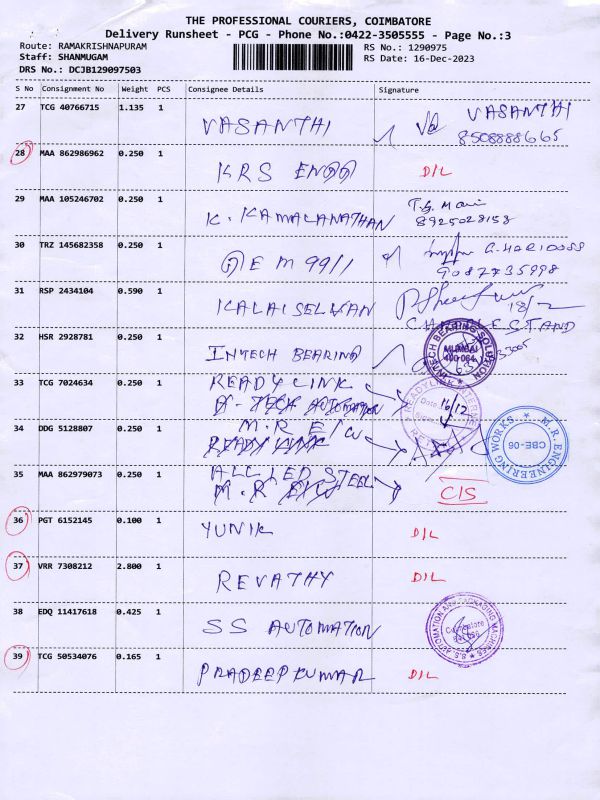 THE PROFESSIONAL COURIERS, COIMBATORE
Delivery Runsheet - PCG - Phone No.:0422-3505555 - Page No.:3
Route: RAMAKRISHNAPURAM RS No.: 1290975
Staff: SHANMUGAM RS Date: 16-Dec-2023
DRS No.: DCJB129097503
S No Consignment No Weight PCS Consignee Details Signature
27 TCG 40766715 1.135 1 VASANTHI VASANTHI
8508888665
28 MAA 862986962 0.250 1 KRS ENGG D/L
29 MAA 105246702 0.250 1 K. KAMALANATHAN T.G. Mani
8925028158
30 TRZ 145682358 0.250 1 GEM 99/1 G. HARIDOSS
9087735998
31 RSP 2434104 0.590 1 KALAISELVAN
32 HSR 2928781 0.250 1 INTECH BEARING INTECH BEARING SOLUTION
33 TCG 7024634 0.250 1 READY LINK 16/12
A-TECH AUTOMATION
34 DDG 5128807 0.250 1 M.R E/W M.R. ENGINEERING WORKS
READY LINK CBE-06
35 MAA 862979073 0.250 1 ALLIED STEEL C/S
M.R E/W
36 PGT 6152145 0.100 1 YUNIK D/L
37 VRR 7308212 2.800 1 REVATHY D/L
38 EDQ 11417618 0.425 1 SS AUTOMATION S.S. AUTOMATION AND PACKAGING MACHINES
Coimbatore
39 TCG 50534076 0.165 1 PRADEEPKUMAR D/L